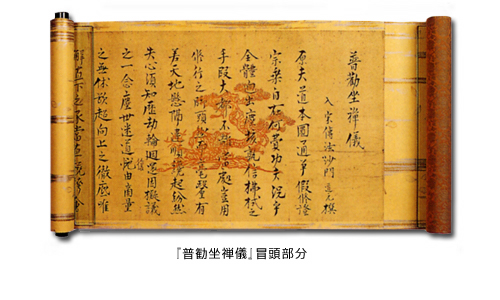 普勸坐禪儀
入宋傳法沙門道元撰
原夫道本圓通爭假修證
宗乗自在何費功夫況乎
全體迥出塵埃兮孰信拂拭之
手段大都不離當處兮豈用
修行之脚頭者然而毫釐有
差天地懸隔違順纔起紛然
失心須知歷劫輪迴還因擬議
之一念塵世迷道復由商量
之無休欲超向上之徹底唯
解直下之承當直
『普勧坐禅儀』冒頭部分